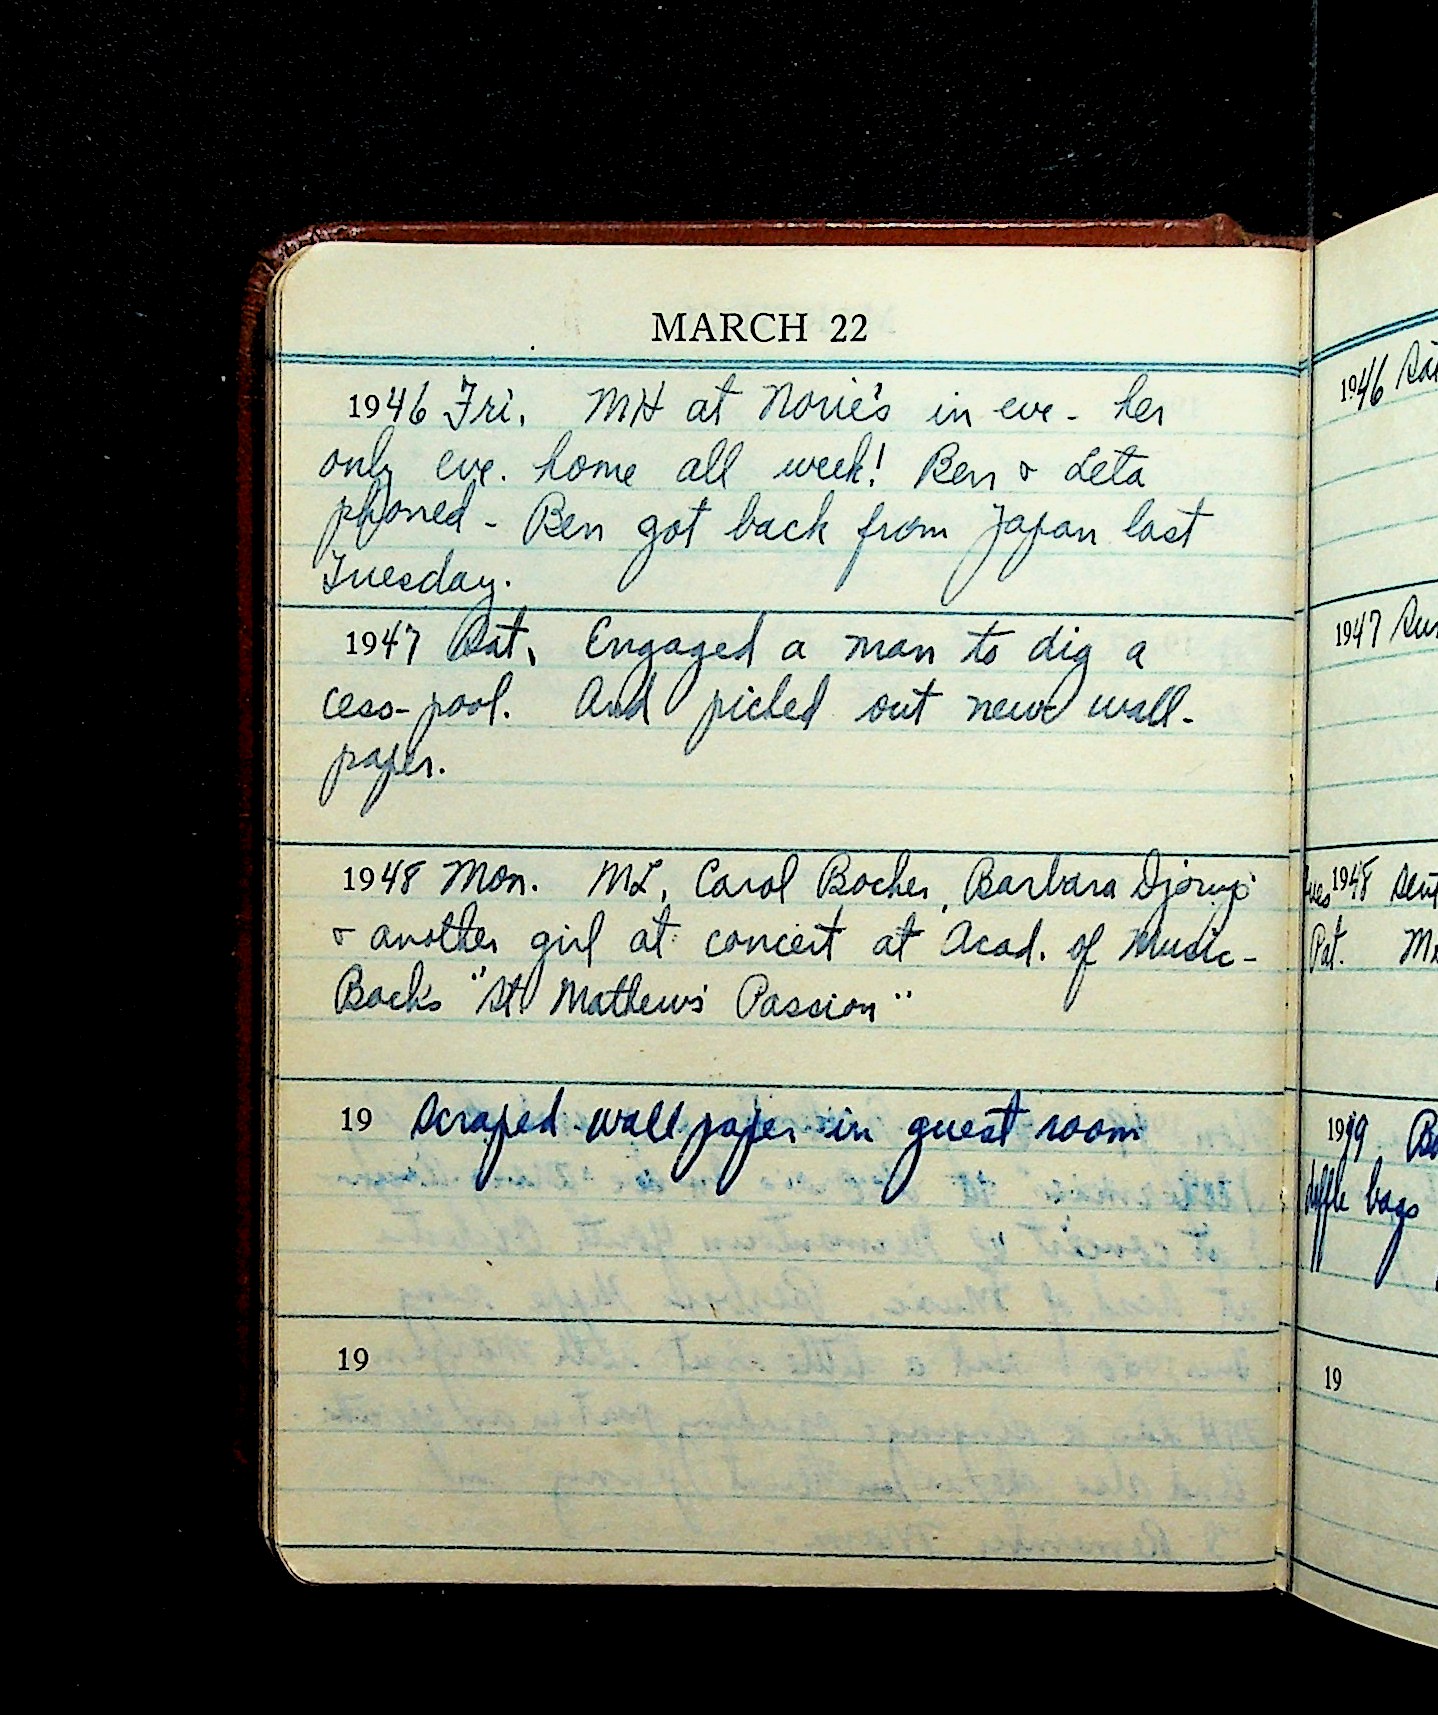 MARCH 22
1946 Fri. MH at Norie's in eve - her
only eve. home all week! Ben & Leta
phoned - Ben got back from Japan last
Tuesday.
1947 Sat. Engaged a man to dig a
cess-pool. And picked out new wall-
paper.
1948 Mon. ML, Carol Bocher, Barbara
& another girl at concert at Acad. of Music -
Bach's "St. Mathew's Passion"
19 Scraped wall paper in guest room
19
1946 Sat
1947 Sun
1948 Sent
Pat.
1949
duffle bags
19